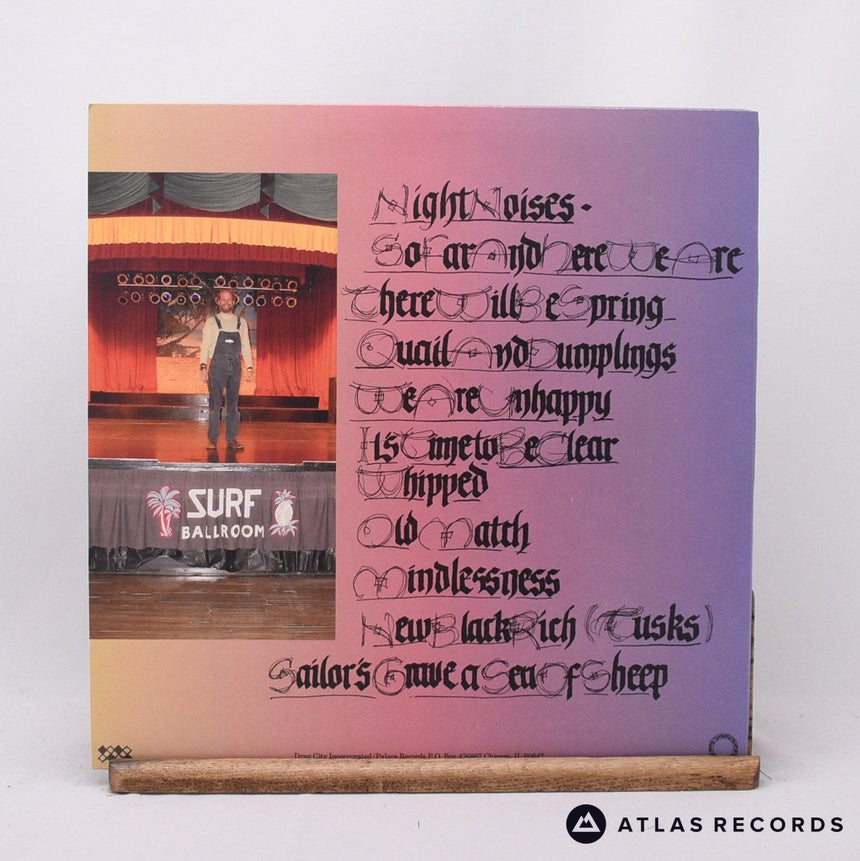 Night Noises -
So Far And Here We Are
There Will Be Spring
Quail And Dumplings
We Are Unhappy
Its Time to Be Clear
Whipped
Old Match
Mindlessness
New Black Rich (Tusks)
Sailor's Grave a Sea Of Sheep
SURF
BALLROOM
Drag City Incorporated/Palace Records P.O. Box 476867 Chicago, IL 60647
ATLAS RECORDS